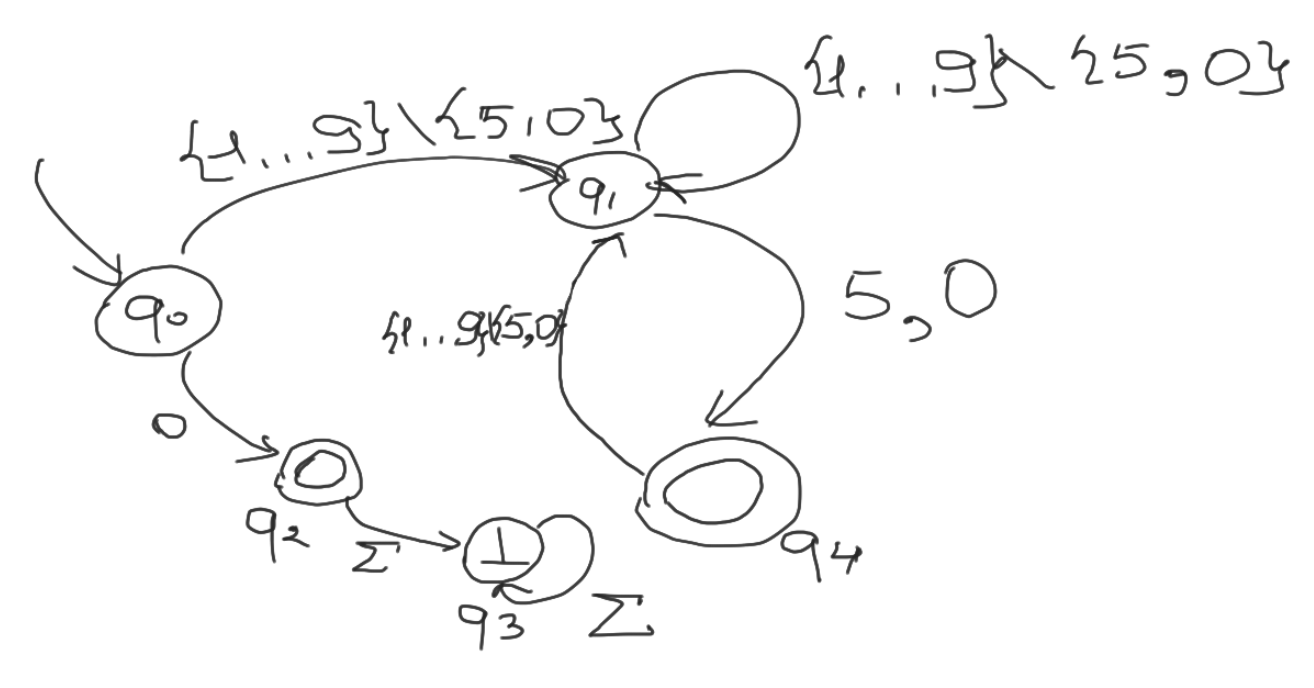 {1...9}\{5,0}
{1...9}\{5,0}
q1
q0
5,0
{1..9}\{5,0}
0
q2
Σ
⊥
q3
Σ
q4